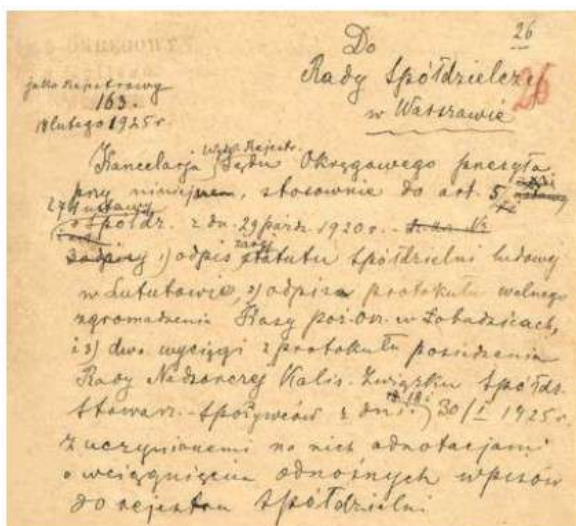 26
Do
Rady Spółdzielczej
w Warszawie
26
163.
18 lutego 1925 r
Kancelacja Wydz. Rejestr. Sądu Okręgowego przesyła
przy niniejszem, stosownie do art. 5
ustawy
o spółdz. z dn. 29 paźdz. 1920 r.
1) odpis statutu spółdzielni ludowej
w Lututowie, 2) odpisa protokułu walnego
zgromadzenia Kasy poż. osz. w Łobudzicach,
i 3) dwa wyciągi z protokułu posiedzenia
Rady Nadzorczej Kalis. Związku Spółdz.
Stowarz. Spożywców z dni: 30/I 1925 r.
z uczynionemi na nich adnotacjami
o wciągnięciu odnośnych wpisów
do rejestru spółdzielni